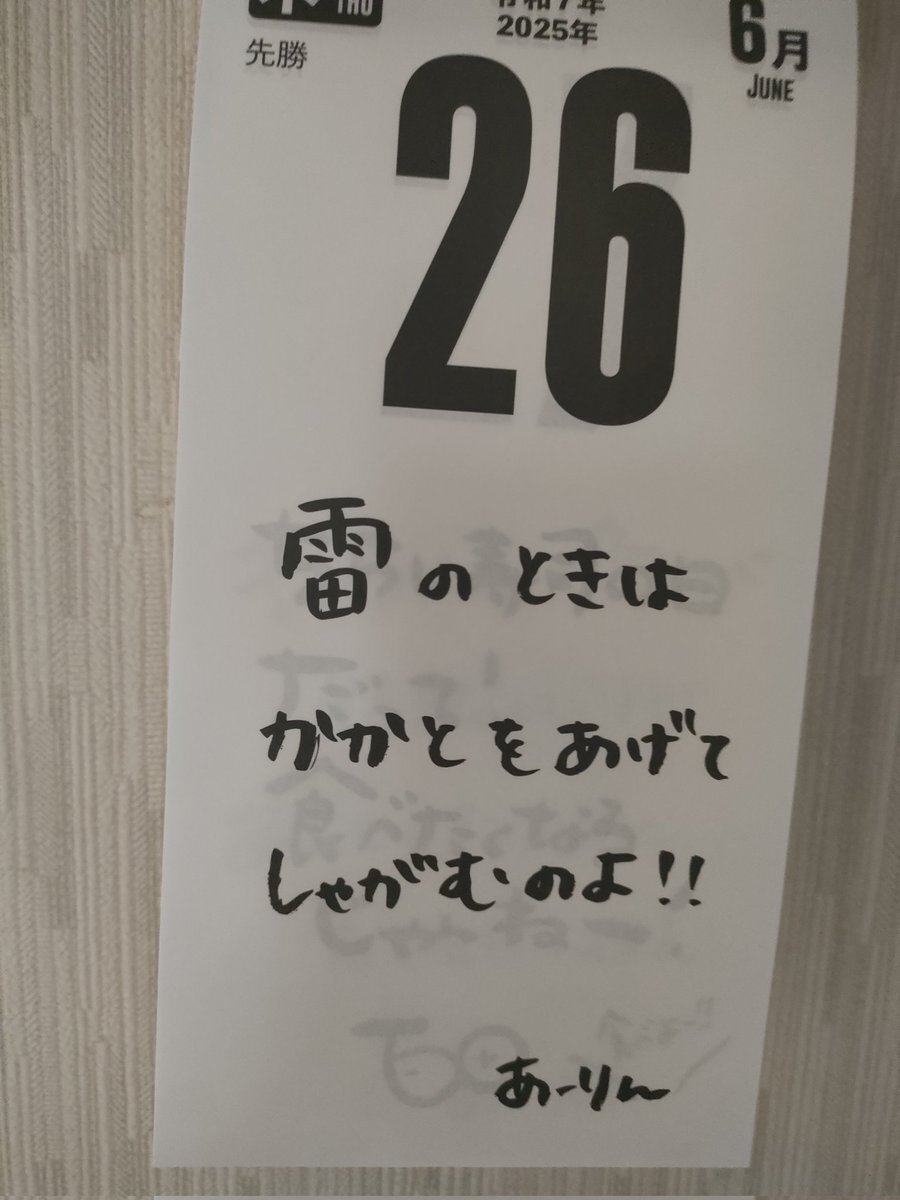 THU
令和7年
2025年
6月
JUNE
先勝
26
雷のときは
かかとをあげて
しゃがむのよ!!
あーりん